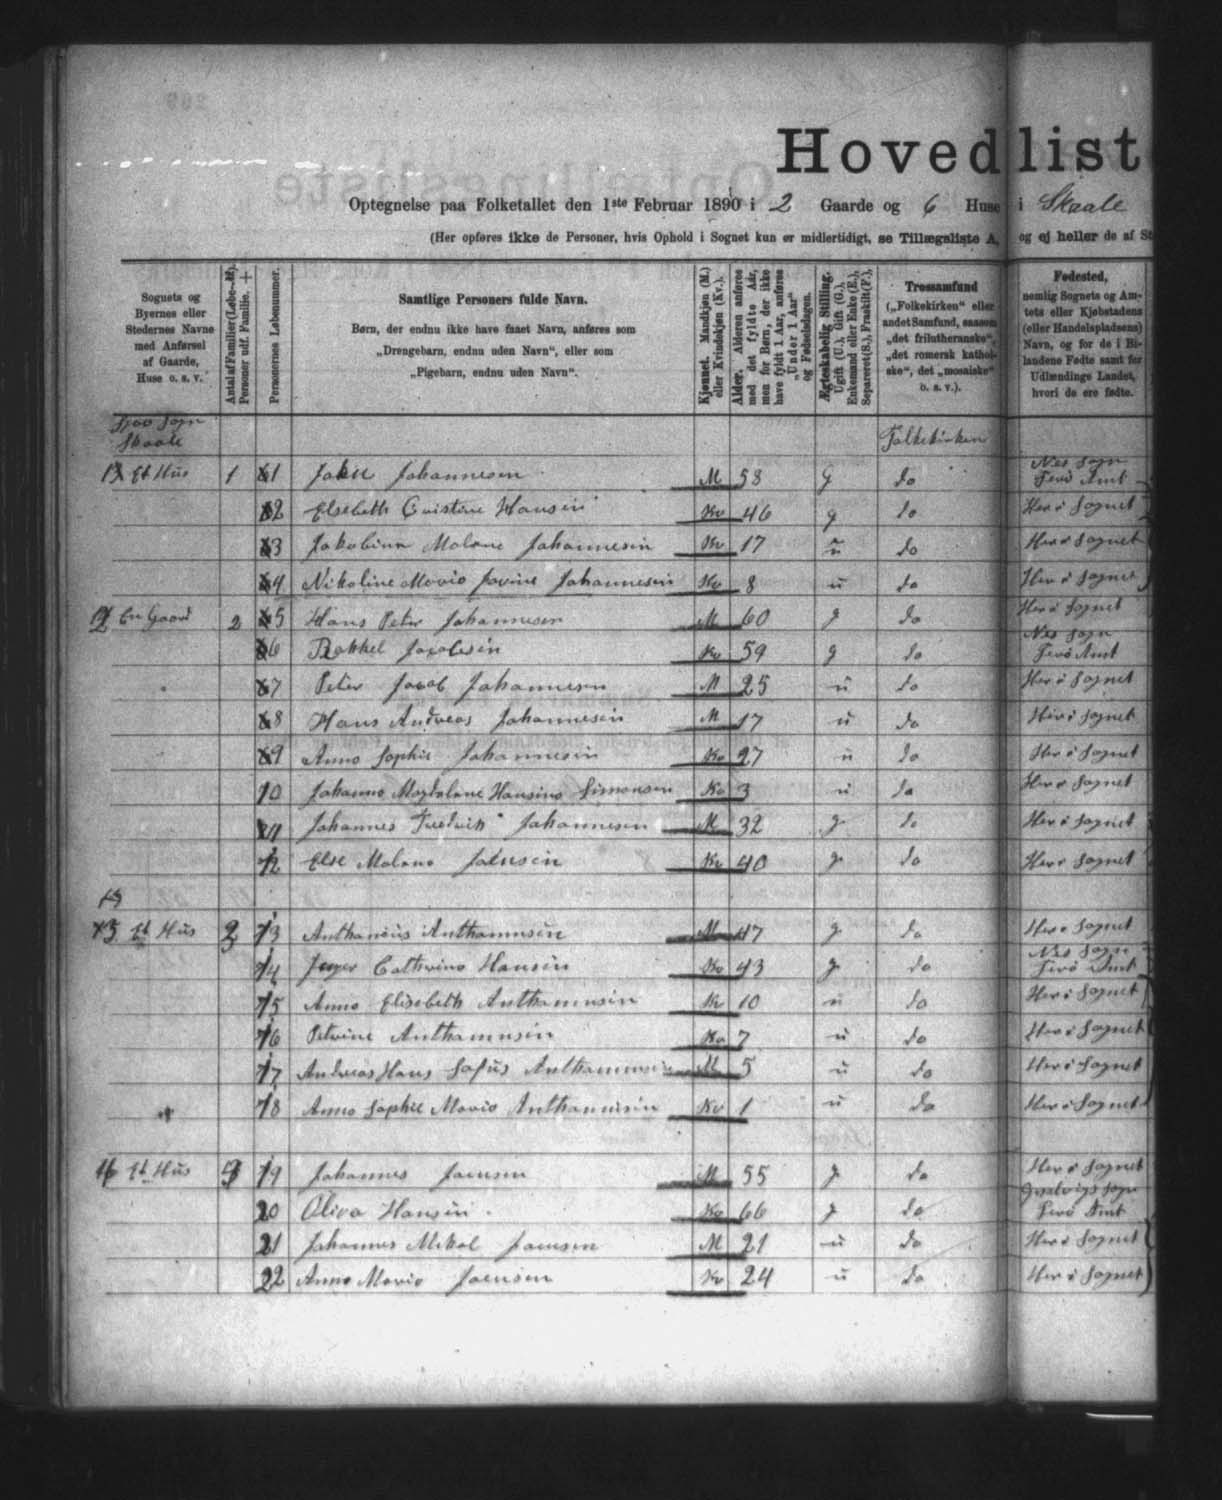 Hovedlist
Optegnelse paa Folketallet den 1ste Februar 1890 i 2 Gaarde og 6 Huse i Skaale
(Her opføres ikke de Personer, hvis Ophold i Sognet kun er midlertidigt, se Tillægsliste A, og ej heller de af St
Sognets og Byernes eller Stedernes Navne med Anførsel af Gaarde, Huse o. s. v.
Antal af Familier (Løbe-№). Personer udf. Familie. +
Personernes Løbenummer.
Samtlige Personers fulde Navn.
Børn, der endnu ikke have faaet Navn, anføres som
„Drengebarn, endnu uden Navn“, eller som
„Pigebarn, endnu uden Navn“.
Kjønnet. Mandkjøn (M.) eller Kvindekjøn (Kv.).
Alder. Alderen anføres med det fyldte Aar, men for Børn, der ikke have fyldt 1 Aar, anføres „Under 1 Aar“ og Fødselsdagen.
Ægteskabelig Stilling. Ugift (U.), Gift (G.), Enkemand eller Enke (E.), Separeret (S.), Fraskilt (F.).
Trossamfund
(„Folkekirken“ eller andet Samfund, saasom „det frilutheranske“, „det romersk katholske“, det „mosaiske“ o. s. v.).
Fødested,
nemlig Sognets og Amtets eller Kjøbstadens (eller Handelspladsens) Navn, og for de i Bilandene Fødte samt for Udlændinge Landet, hvori de ere fødte.
Sogn
Skaale Folkekirken
Et Hus 1 1 Johannesen M 58 g do Nes Sogn Ferø Amt
2 Elsebeth Cristine Hansen Kv 46 g do Her i Sognet
3 Jakobina Malene Johannesen Kv 17 u do Her i Sognet
4 Nikoline Johannesen Kv 8 u do Her i Sognet
En Gaard 2 5 Hans Peter Johannesen M 60 g do Her i Sognet
6 Rakkel Jacobsen Kv 59 g do Nes Sogn Ferø Amt
7 Peter Jacob Johannesen M 25 u do Her i Sognet
8 Hans Andreas Johannesen M 17 u do Her i Sognet
9 Anna Sophie Johannesen Kv 27 u do Her i Sognet
10 Johanna Magdalene Hansine Simonsen Kv 3 u do Her i Sognet
11 Johannes Fredrik Johannesen M 32 g do Her i Sognet
12 Else Malena Kv 40 g do Her i Sognet
Et Hus 3 13 M 47 g do Her i Sognet
14 Cathrina Hansen Kv 43 g do Nes Sogn Ferø Amt
15 Anna Elisebeth Kv 10 u do Her i Sognet
16 Petrine Kv 7 u do Her i Sognet
17 Andreas Hans Sofus M 5 u do Her i Sognet
18 Anna Sophie Maria Kv 1 u do Her i Sognet
Et Hus 19 Johannes Joensen M 55 g do Her i Sognet
20 Oliva Hansen Kv 66 g do Sogn Ferø Amt
21 Johannes Mikal Joensen M 21 u do Her i Sognet
22 Anna Maria Joensen Kv 24 u do Her i Sognet